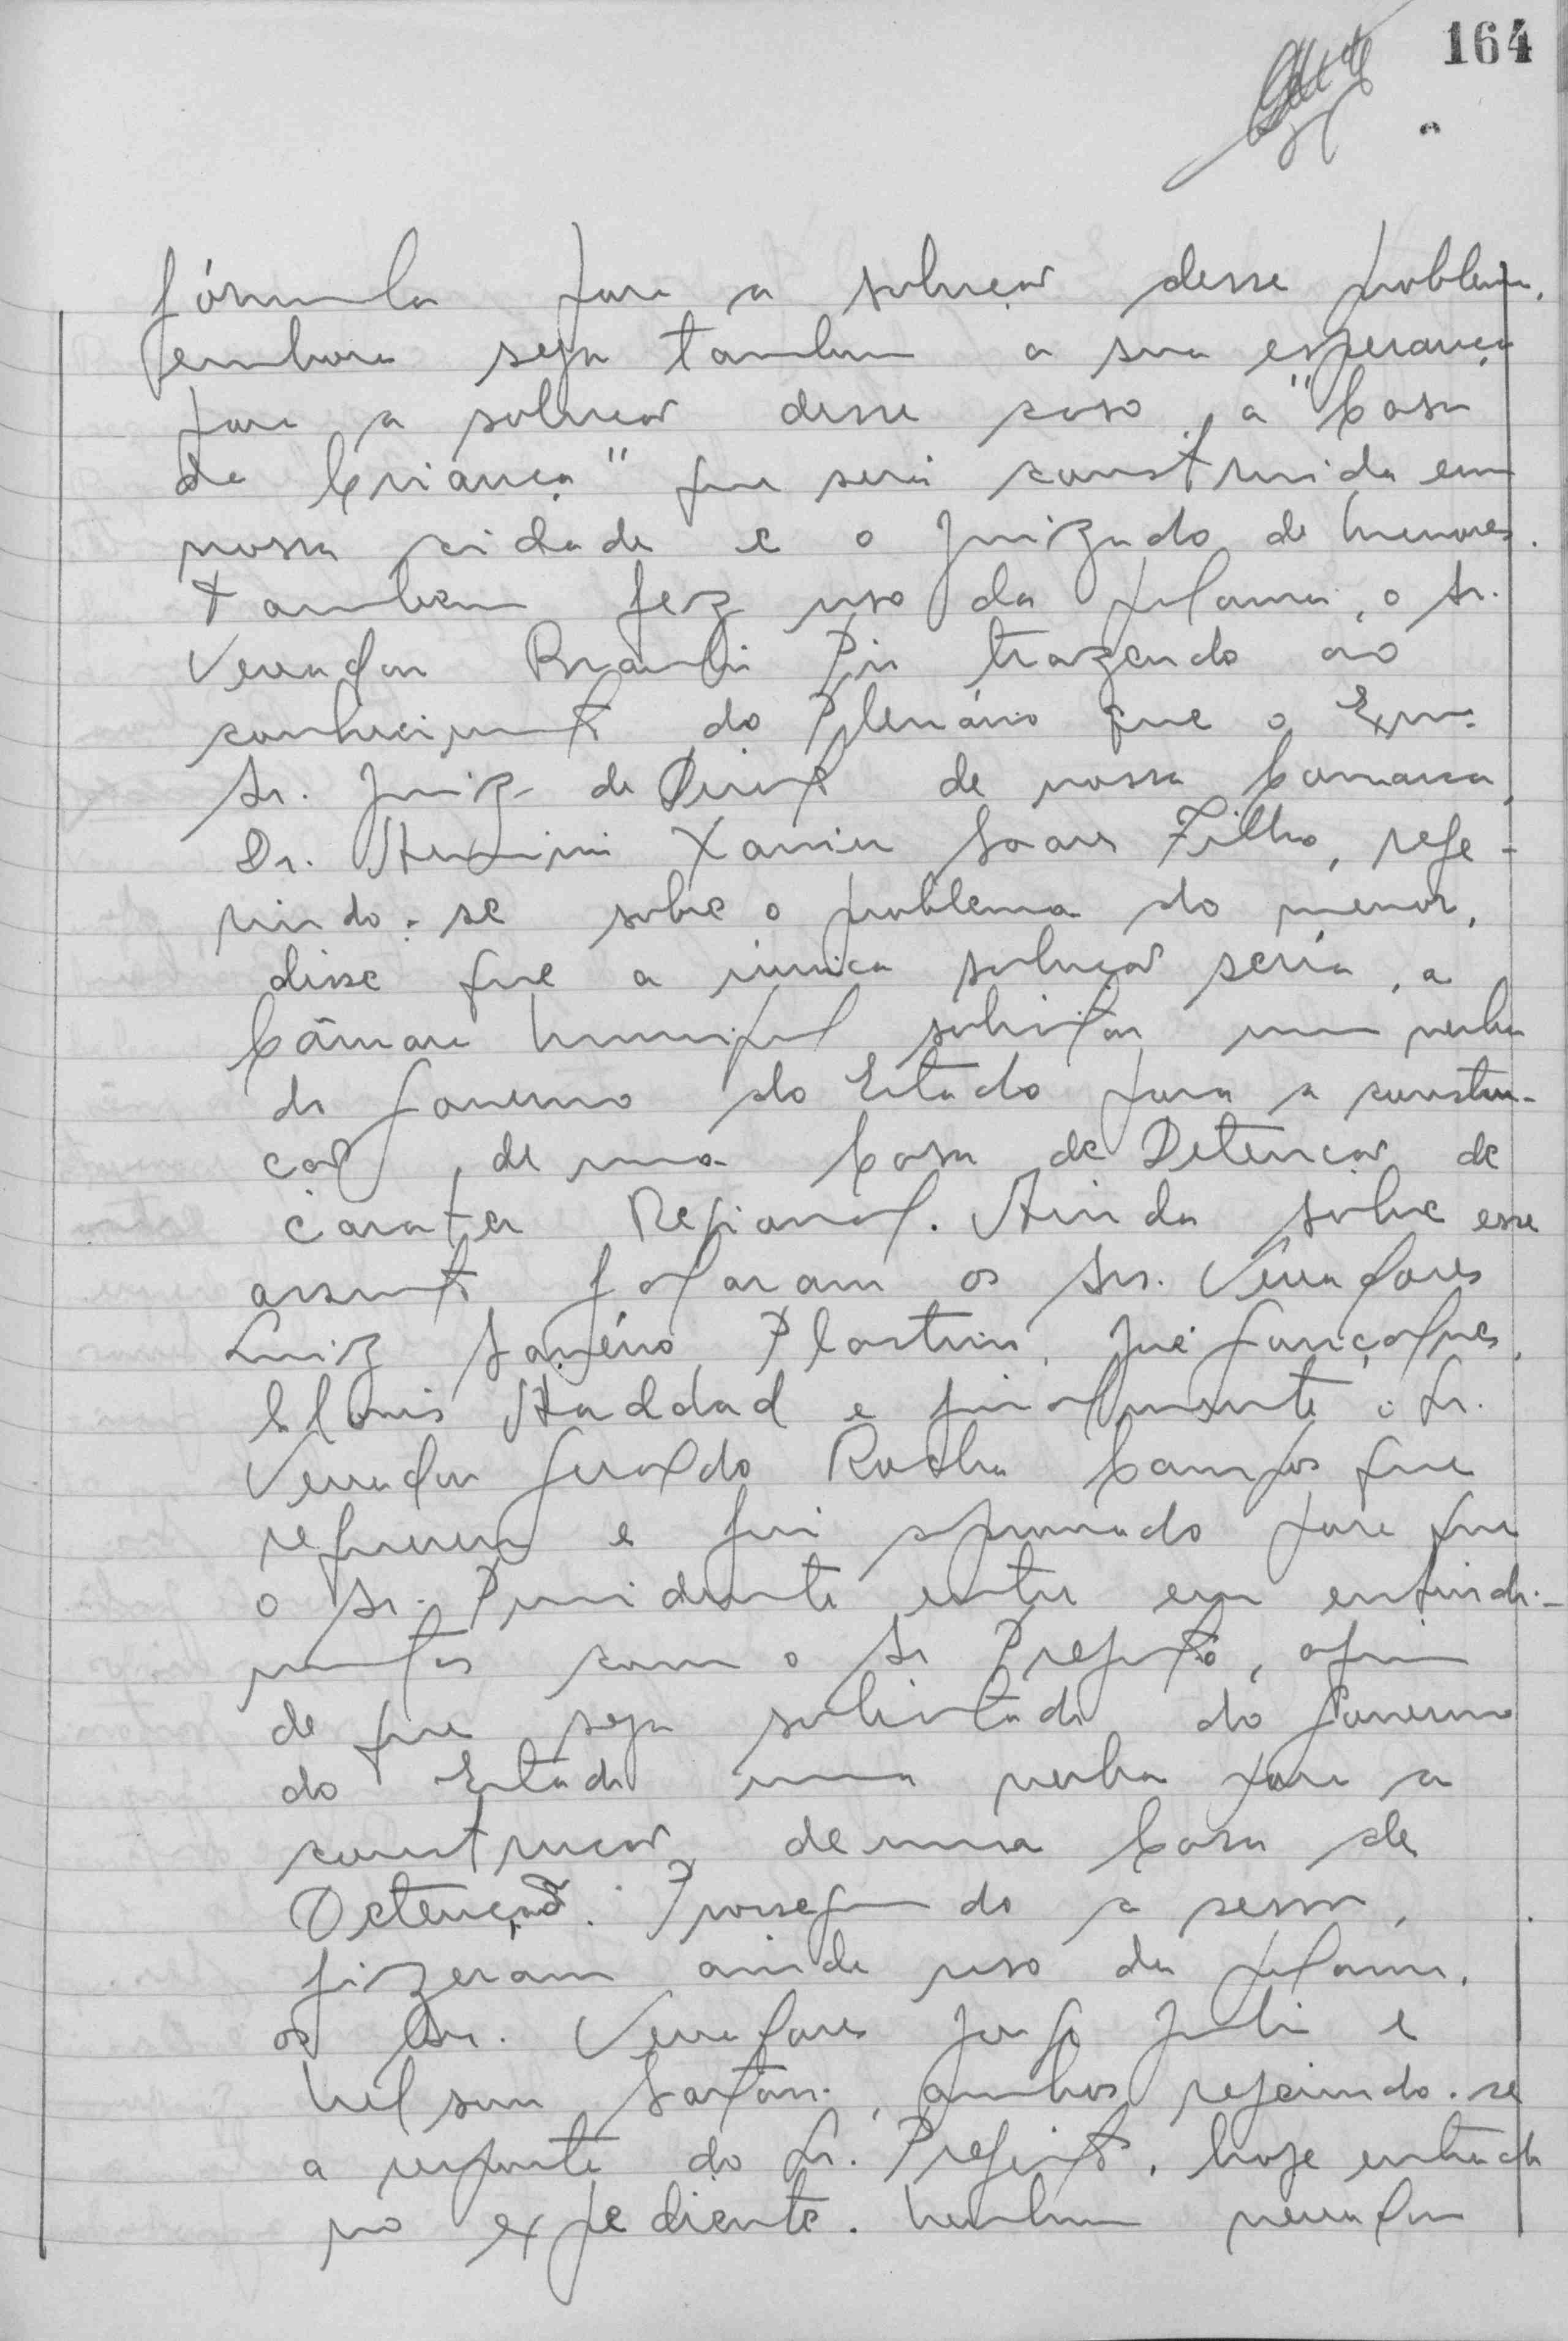 164
fórmula para a solução desse problema,
embora seja tambem a sua esperança
para a solução desse caso, a "Casa
da Criança" que será construida em
nossa cidade e o Juizado de Menores.
Tambem fez uso da palavra, o Sr.
Vereador trazendo ao
conhecimento do Plenário que o Exmo.
Sr. Juiz de Direito de nossa Comarca,
Dr. Xavier Soares Filho, refe-
rindo-se sobre o problema do menor,
disse que a única solução seria, a
Câmara Municipal solicitar uma verba
do Governo do Estado para a constru-
ção, de uma Casa de Detenção de
carater Regional. Ainda sobre esse
assunto falaram os Srs. Vereadores
Luiz José Gonçalves,
Haddad e finalmente o Sr.
Vereador Geraldo Rocha Campos que
requereu e foi aprovado para que
o Sr. Presidente entre em entendi-
mentos com o Sr Prefeito, afim
de que seja solicitado do Governo
do Estado uma verba para a
construção de uma Casa de
Detenção. Prosseguindo a sessão,
fizeram ainda uso da palavra,
os Srs. Vereadores e
Nelson , ambos referindo-se
a resposta do Sr. Prefeito, hoje entrada
no expediente. Nenhum vereador